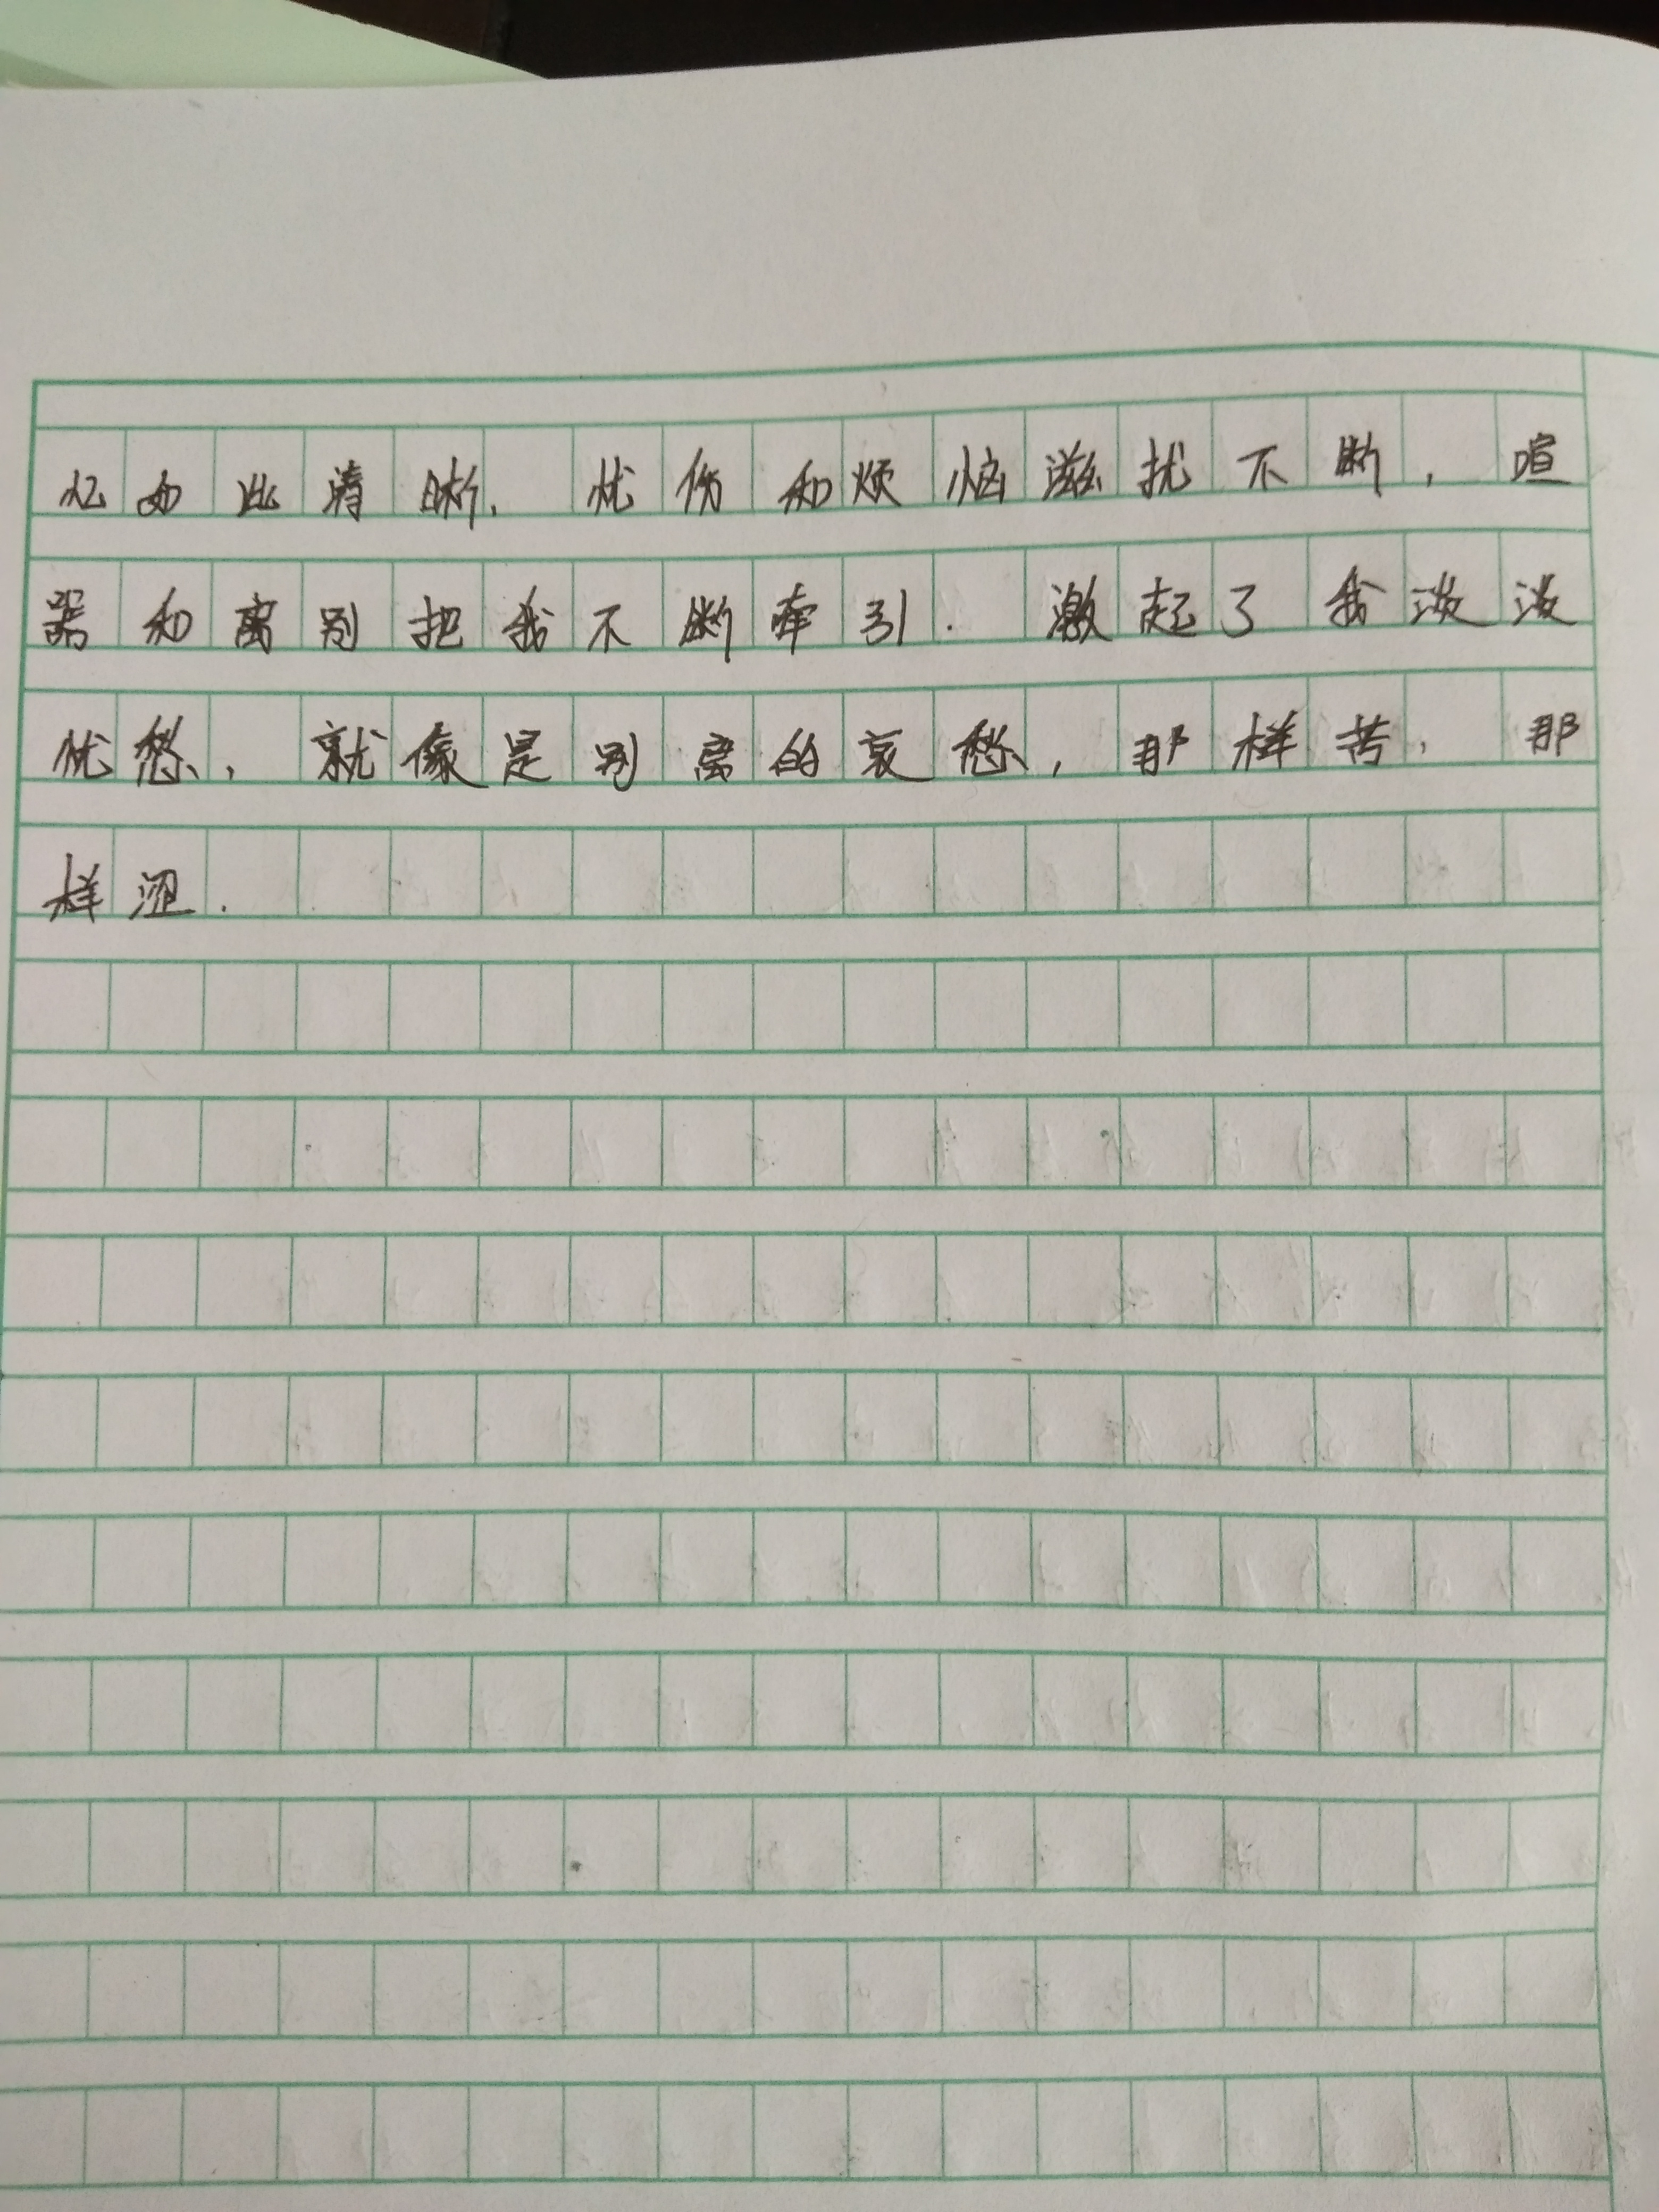 忆如此清晰. 忧伤和烦恼滋扰不断, 喧
嚣和离别把我不断牵引. 激起了我淡淡
忧愁, 就像是别离的哀愁, 那样苦, 那
样涩.